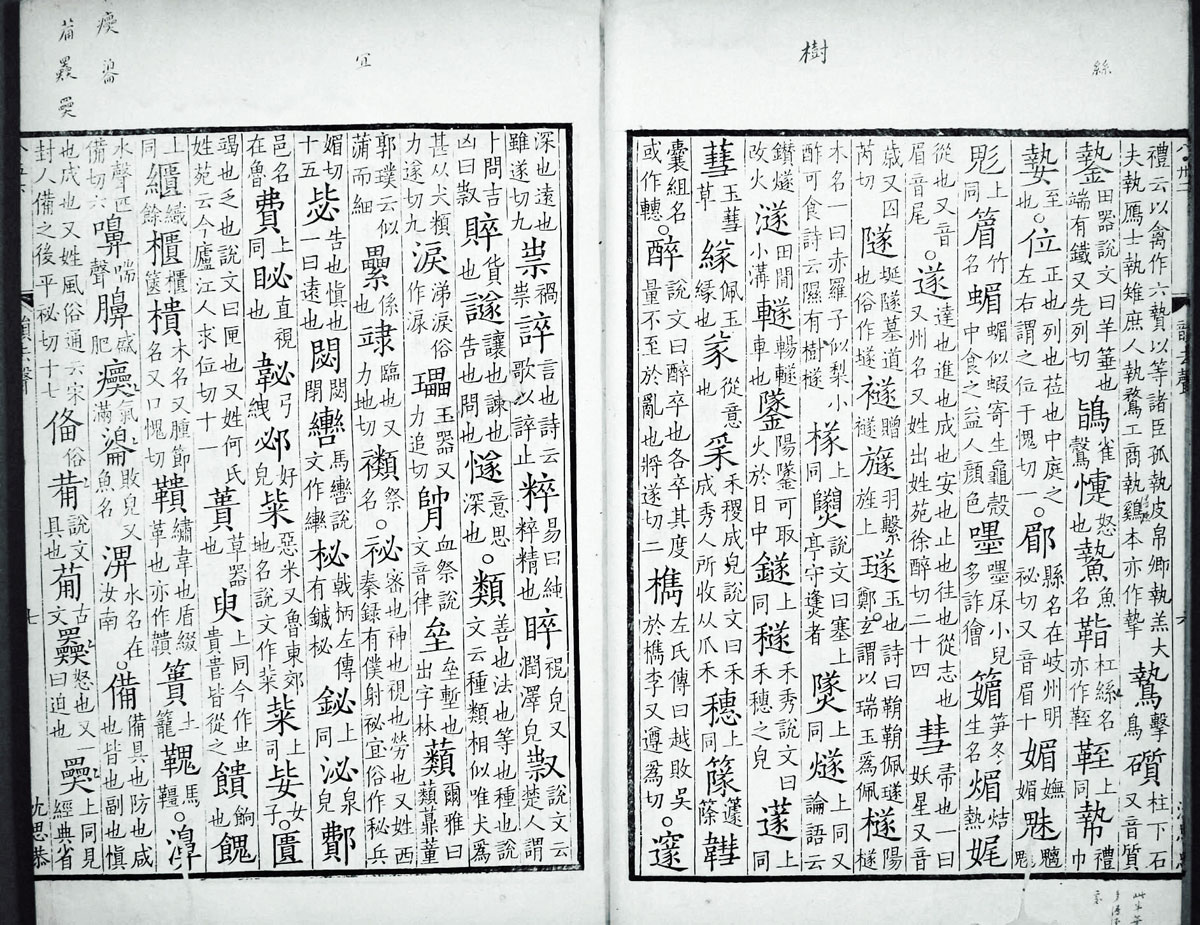 樹
絲
宜
禮云以禽作六贄以等諸臣孤執皮帛卿執羔大夫執鴈士執雉庶人執鶩工商執鷄本亦作摯鷙擊鳥礩柱下石又音質
田器說文曰羊箠也端有鐵又先列切懥怒也魚名杠絲名上同禮巾
至也。位正也列也莅也中庭之左右謂之位于愧切一。郿縣名在岐州明祕切又音眉十媚嫵媚魅魑魅
鬽上同篃竹名蝞蝞似蝦寄生龜殼中食之益人顏色嚜嚜㞘小兒多詐獪䉋笋冬生名煝焅熱娓
從也又音眉音尾。遂達也進也成也安也止也往也從志也又州名又姓出姓苑徐醉切二十四彗帚也一曰妖星又音
歲又囚芮切隧埏隧墓道也俗作墜襚贈襚旞羽繫旌上璲玉也詩曰鞙鞙佩璲鄭玄謂以瑞玉爲佩檖
木名一曰赤羅子似梨小酢可食詩云隰有樹檖上同說文曰塞上亭守㷭者上同燧上同又論語云
鑚燧改火澻田閒小溝䡵暢䡵車也鐆陽鐆可取火於日中鐩上同穟禾秀說文曰禾穗之皃蓫上同
玉彗草繸佩玉緣也㒸從意也采禾稷成皃說文曰禾成秀人所收从爪禾穗上同韢
囊組名或作轊。醉說文曰醉卒也各卒其度量不至於亂也將遂切二檇左氏傳曰越敗吳於檇李又遵爲切。邃
深也遠也雖遂切九祟禍祟誶言也詩云歌以誶止粹易曰純粹精也睟視皃又潤澤皃說文云楚人謂
卜問吉凶曰賥貨也讓也諫也告也問也㥞意思深也。類善也法也等也種也說文云種類相似唯犬爲
甚从犬頪力遂切九淚涕淚俗作㴃瓃玉器又力追切膟血祭說文音律垒垒塹也出字林爾雅曰薡蕫
郭璞云似蒲而細纍係也臨也又力地切禷祭名。祕密也神也視也勞也又姓西秦録有僕射祕宜俗作秘兵
媚切十五毖告也慎也一曰遠也閟閟閉轡馬轡說文作柲戟柄左傳有鏚柲鉍上同泌泉皃鄪
邑名在魯費上同直視也弓紲邲好皃粊惡米又魯東郊地名說文作上同女子。匱
竭也乏也說文曰匣也又姓何氏姓苑云今廬江人求位切十一蕢草器也臾上同今作貴蕢皆從之饋餉也餽
上同織餘櫃櫃篋樻木名又腫節名又口愧切鞼繡韋也盾綴革也亦作簣土籠馬韁。濞
水聲匹備切六嚊喘聲盛肥氣滿敗皃又魚名淠水名在汝南。備備具也防也咸也皆也副也慎
也成也又姓風俗通云宋封人備之後平祕切十七俻俗𤰇說文具也古文怒也又一曰迫也奰上同見經典省
沈思恭